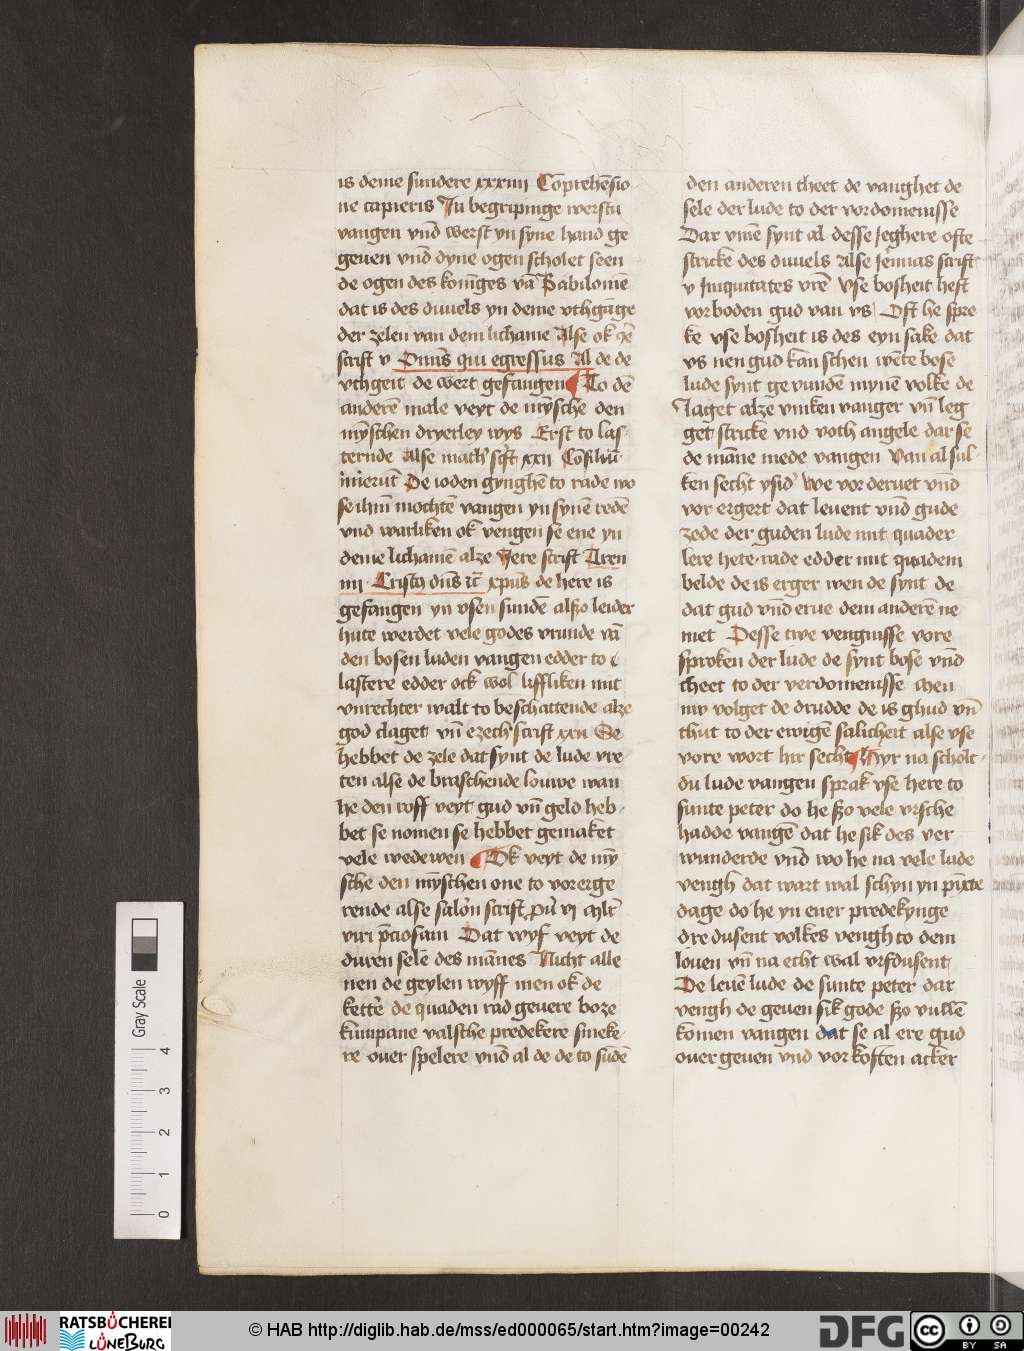 is deme sundere xxxiiii Cōprehēsio
ne capieris Ju begripinge werstu
vangen vnd werst yn syne hand ge
geuen vnd dyne ogen scholet seen
de ogen des konīges vā Babilonie
dat is des duuels yn deme vthgāge
der zelen van dem lichame Alse ok
scrift v Omīs qui egressus Al de de
vthgeit de wert gefangen To dē
anderē male veyt de mȳsche den
mȳschen dryerley wys Erst to las
ternde Alse math' xxii
inierūt De ioden gynghē to rade wo
se ihm mochtē vangen yn synē redē
vnd warliken ok vengen se ene yn
deme lichamē alze Jere scrift Tren
iiii Cristꝯ dn̄s xp̄us de here is
gefangen yn vsen sundē alßo leider
hute werdet vele godes vrunde vā
den bosen luden vangen edder to
lastere edder ock wol liffliken mit
vnrechter walt to beschattende alze
god claget vn̄ ezech' scrift xxii Se
hebbet de zele dat synt de lude vre
ten alse de braschende louwe wan
he den roff veyt gud vn̄ geld heb
bet se nomen se hebbet gemaket
vele wedewen Ok veyt de mȳ
sche den mȳschen one to vorerge
rende alse salōn scrift vi
viri p̄ciosam Dat wyf veyt de
duren sele des mānes Nicht alle
nen de geylen wyff men ok de
de quaden rad geuere boze
kūmpane valsche predekere smeke
re ouer spelere vnd al de de to sūdē
den anderen theet de vanghet de
sele der lude to der vordomenisse
Dar vmē synt al desse Jeghere ofte
stricke des duuels Alse Jemias scrift
v Iniquitates vrē Vse bosheit heft
vorboden gud van vs Oft he spre
ke vse bosheit is des eyn sake dat
vs nen gud kan schen wēte bose
lude synt ge vundē mynē volke de
Jaget alze vinken vanger vn̄ leg
get stricke vnd voth angele dar se
de māne mede vangen Van al sul
ken secht ysid' We vor deruet vnd
vor ergert dat leuent vnd gude
zede der guden lude mit quader
lere here rade edder mit quadem
belde de is erger wen de synt de
dat gud vnd erue dem anderē ne
met Desse twe vengnisse vore
sproken der lude de synt bose vnd
theet to der verdomenisse Men
my volget de drudde de is ghud vn̄
thut to der ewigē salicheit alse vse
vore wort hir secht Hyr na scholt
du lude vangen sprak vse here to
sunte peter do he ßo vele vissche
hadde vangē dat he sik des ver
wunderde vnd wo he na vele lude
vengh dat wart wal schyn yn pīxte
dage do he yn ener predekynge
dre dusent volkes vengh to dem
louen vn̄ na echt wal vifdusent
De leuē lude de sunte peter dar
vengh de geuen sik gode ßo vullē
komen vangen dat se al ere gud
ouer geuen vnd vorkoften acker
Gray Scale
4
3
2
1
0
RATSBÜCHEREI
LÜNEBURG
© HAB http://diglib.hab.de/mss/ed000065/start.htm?image=00242
DFG
cc
BY SA